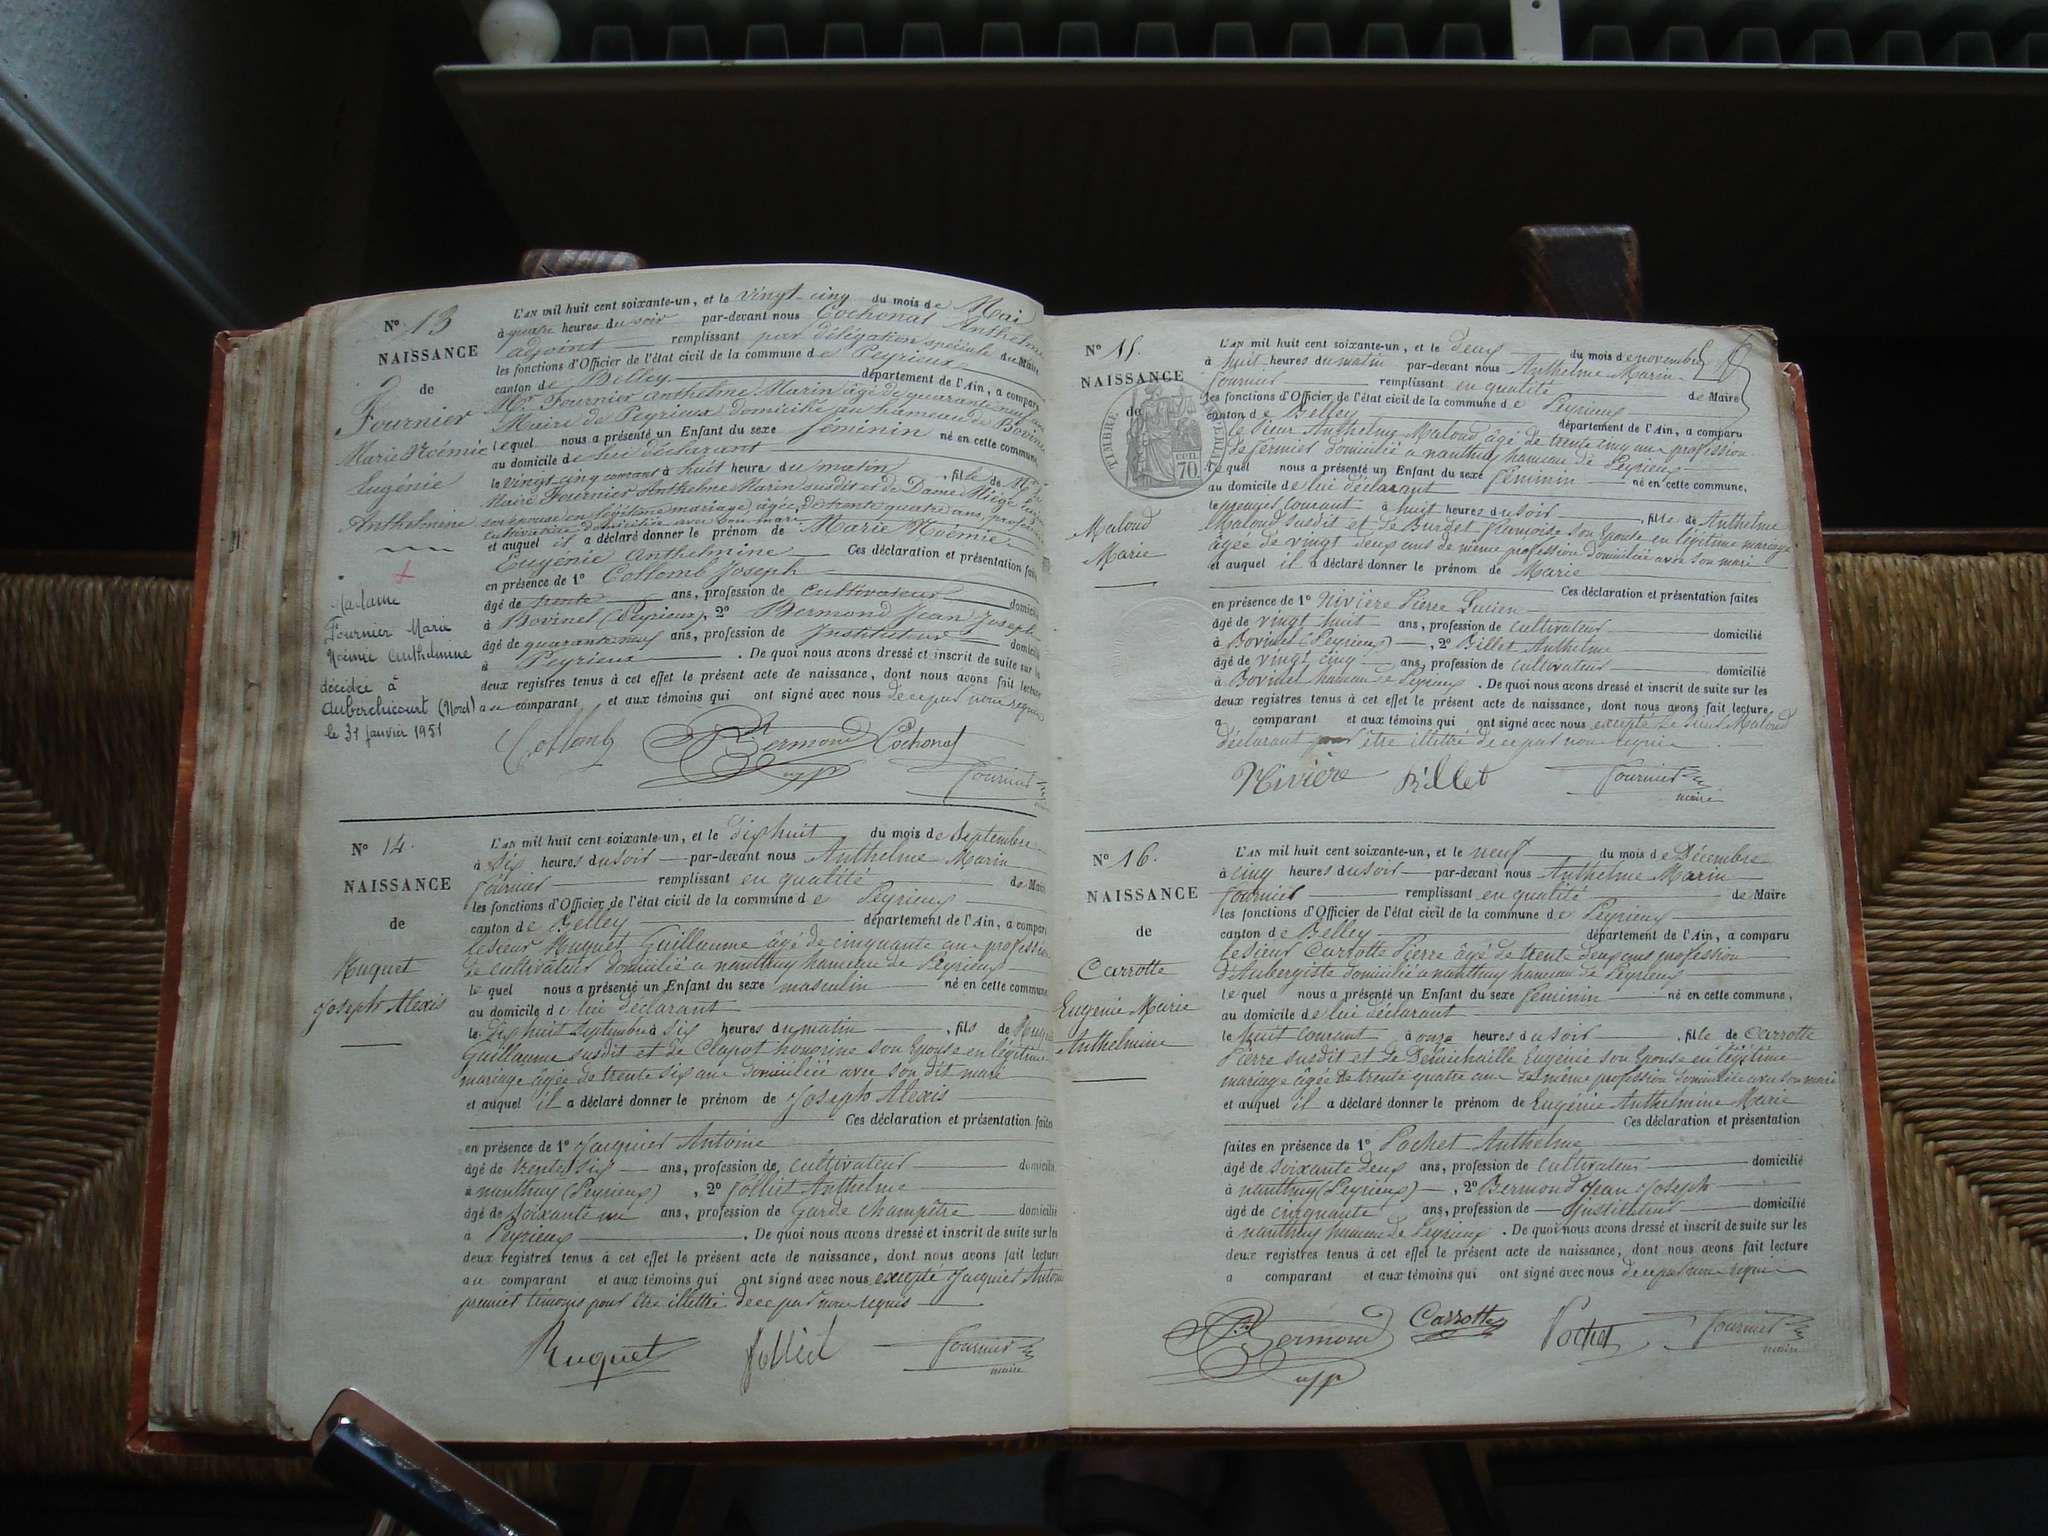 N° 13
NAISSANCE
de
Fournier
Marie Noémie
Eugénie
Anthelmine
Madame
Fournier Marie
Noémie Anthelmine
décédée à
Auberchicourt (Nord)
le 31 janvier 1951
L'AN mil huit cent soixante-un, et le vingt-cinq du mois de Mai
à quatre heures du soir par-devant nous Cochonat Anthelme
adjoint remplissant par délégation spéciale du Maire
les fonctions d'Officier de l'état civil de la commune de Peyrieux
canton de Belley département de l'Ain, a comparu
Mr Fournier Anthelme Marin âgé de quarante neuf ans
Maire de Peyrieux domicilié au hameau de Bovinel
lequel nous a présenté un Enfant du sexe féminin né en cette commune,
au domicile de lui déclarant
le vingt cinq courant à huit heures du matin, fille de Mr le
Maire Fournier Anthelme Marin susdit et de Dame Miège
son épouse en légitime mariage, âgée de trente quatre ans, profession
cultivatrice domiciliée avec son mari
et auquel il a déclaré donner le prénom de Marie Noémie
Eugénie Anthelmine Ces déclaration et présentation faites
en présence de 1° Collomb Joseph
âgé de trente ans, profession de cultivateur domicilié
à Bovinel (Peyrieux), 2° Bermond Jean Joseph
âgé de quarante neuf ans, profession de Instituteur domicilié
à Peyrieux. De quoi nous avons dressé et inscrit de suite sur les
deux registres tenus à cet effet le présent acte de naissance, dont nous avons fait lecture
au comparant et aux témoins qui ont signé avec nous de ce par nous requis
Collomb Bermond Cochonat
Fournier
N° 14.
NAISSANCE
de
Ruguet
Joseph Alexis
L'AN mil huit cent soixante-un, et le dix huit du mois de Septembre
à six heures du soir par-devant nous Anthelme Marin
Fournier remplissant en qualité de Maire
les fonctions d'Officier de l'état civil de la commune de Peyrieux
canton de Belley département de l'Ain, a comparu
le sieur Ruguet Guillaume âgé de cinquante ans profession
de cultivateur domicilié a nanthuy hameau de Peyrieux
lequel nous a présenté un Enfant du sexe masculin né en cette commune,
au domicile de lui déclarant
le dix huit Septembre à six heures du matin, fils de Ruguet
Guillaume susdit et de Clapot honorine son Epouse en légitime
mariage âgée de trente six ans domiciliée avec son dit mari
et auquel il a déclaré donner le prénom de Joseph Alexis
Ces déclaration et présentation faites
en présence de 1° Jacquier Antoine
âgé de trente six ans, profession de cultivateur domicilié
à nanthuy (Peyrieux), 2° Jolliet Anthelme
âgé de soixante un ans, profession de Garde champêtre domicilié
à Peyrieux. De quoi nous avons dressé et inscrit de suite sur les
deux registres tenus à cet effet le présent acte de naissance, dont nous avons fait lecture
au comparant et aux témoins qui ont signé avec nous excepté Jacquier Antoine
premier témoin pour être illettré de ce par nous requis
Ruguet Jolliet Fournier
maire
N° 15.
NAISSANCE
de
TIMBRE
70 cen
Maloud
Marie
L'AN mil huit cent soixante-un, et le deux du mois de novembre
à huit heures du matin par-devant nous Anthelme Marin
Fournier remplissant en qualité de Maire
les fonctions d'Officier de l'état civil de la commune de Peyrieux
canton de Belley département de l'Ain, a comparu
le sieur Anthelme Maloud âgé de trente cinq ans profession
de fermier domicilié a nanthuy hameau de Peyrieux
lequel nous a présenté un Enfant du sexe féminin né en cette commune,
au domicile de lui déclarant
le premier courant à huit heures du soir, fille de Anthelme
Maloud susdit et de Burdet françoise son Epouse en légitime mariage
âgée de vingt deux ans de même profession domiciliée avec son mari
et auquel il a déclaré donner le prénom de Marie
Ces déclaration et présentation faites
en présence de 1° Nivière Pierre Lucien
âgé de vingt huit ans, profession de cultivateur domicilié
à Bovinel (Peyrieux), 2° Billet Anthelme
âgé de vingt cinq ans, profession de cultivateur domicilié
à Bovinel hameau de Peyrieux. De quoi nous avons dressé et inscrit de suite sur les
deux registres tenus à cet effet le présent acte de naissance, dont nous avons fait lecture
a comparant et aux témoins qui ont signé avec nous excepté le sieur Maloud
déclarant pour être illettré de ce par nous requis
Nivière Billet Fournier
maire
N° 16.
NAISSANCE
de
Carrotte
Eugénie Marie
Anthelmine
L'AN mil huit cent soixante-un, et le neuf du mois de Décembre
à cinq heures du soir par-devant nous Anthelme Marin
Fournier remplissant en qualité de Maire
les fonctions d'Officier de l'état civil de la commune de Peyrieux
canton de Belley département de l'Ain, a comparu
le sieur Carrotte Pierre âgé de trente deux ans profession
d'Aubergiste domicilié a nanthuy hameau de Peyrieux
lequel nous a présenté un Enfant du sexe féminin né en cette commune,
au domicile de lui déclarant
le huit courant à onze heures du soir, fille de Carrotte
Pierre susdit et de Eugénie son Epouse en légitime
mariage âgée de trente quatre ans de même profession domiciliée avec son mari
et auquel il a déclaré donner le prénom de Eugénie Anthelmine Marie
Ces déclaration et présentation
faites en présence de 1° Pochet Anthelme
âgé de soixante deux ans, profession de cultivateur domicilié
à nanthuy (Peyrieux), 2° Bermond Jean Joseph
âgé de cinquante ans, profession de Instituteur domicilié
à nanthuy hameau de Peyrieux. De quoi nous avons dressé et inscrit de suite sur les
deux registres tenus à cet effet le présent acte de naissance, dont nous avons fait lecture
a comparant et aux témoins qui ont signé avec nous de ce par nous requis
Bermond Carrotte Pochet Fournier
maire